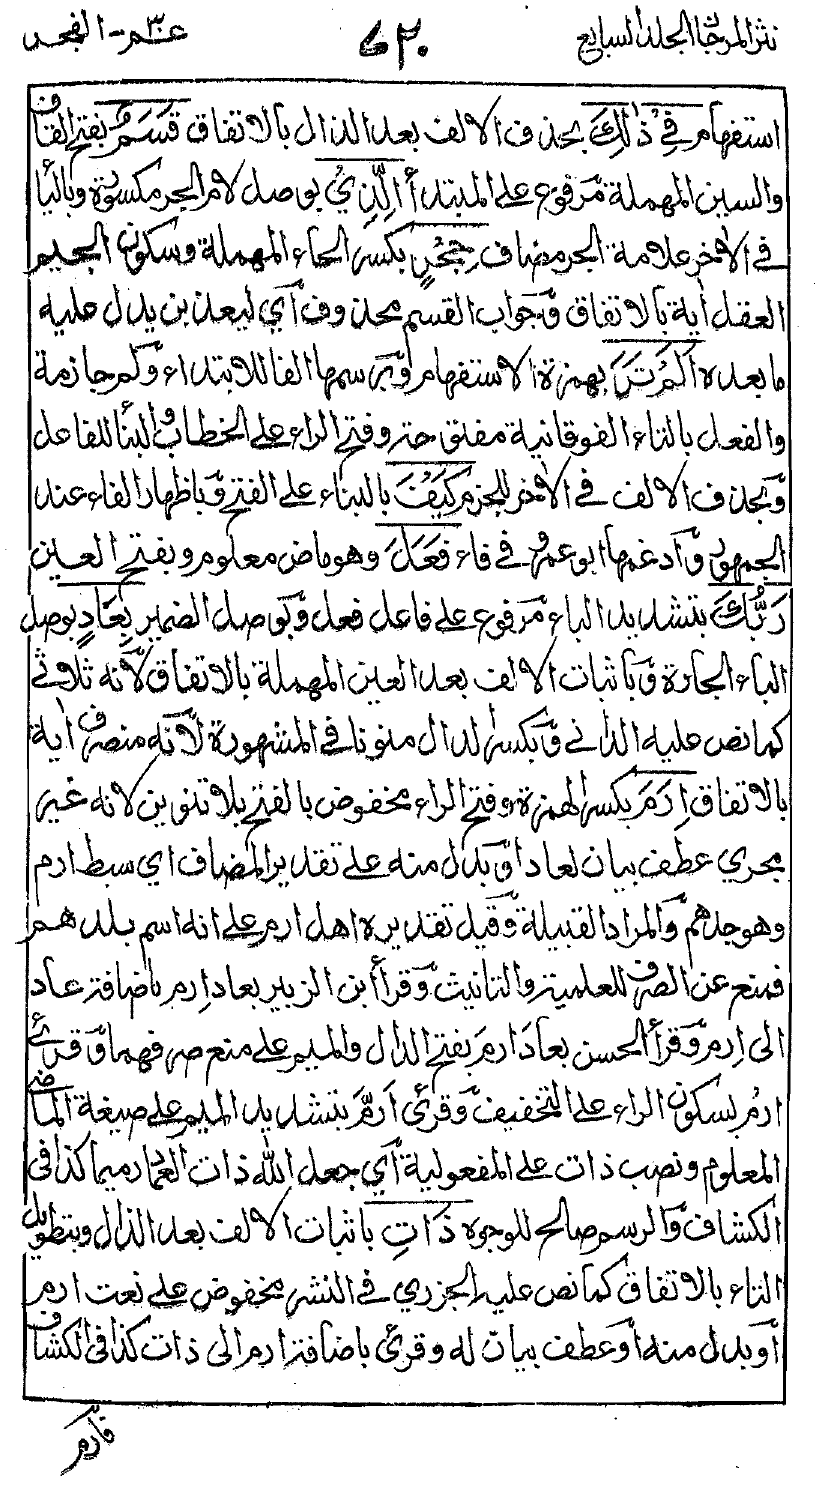 نثر المرجان الجلد السابع ٧٢٠ عم ٣٠ - الفجر
استفهام فِي ذٰلِكَ بحذف الالف بعد الذال بالاتفاق قَسَمٌ بفتح القاف
والسين المهملة مرفوع على المبتدأ لِّذِي بوصل لام الجر مكسورة وباليا
في الآخر علامة الجر مضاف حِجْرٍ بكسر الحاء المهملة وسكون الجيم
العقل اٰية بالاتفاق وجواب القسم محذوف أي ليعذبن يدل عليه
ما بعده اَلَمْ تَرَ بهمزة الاستفهام وبرسمها الفا للابتداء ولم جازمة
والفعل بالتاء الفوقانية مفتوحة وفتح الراء على الخطاب والبناء للفاعل
وبحذف الالف في الآخر للجزم كَيْفَ بالبناء على الفتح وباظهار الفاء عند
الجمهور وادغمها ابو عمرو في فاء فَعَلَ وهو ماض معلوم وبفتح العين
رَبُّكَ بتشديد الباء مرفوع على فاعل فعل وبوصل الضمير بِعَادٍ بوصل
الباء الجارة وباثبات الالف بعد العين المهملة بالاتفاق لأنه ثلاثي
كما نص عليه الداني وبكسر الدال منونا في المشهورة لأنه منصرف اٰية
بالاتفاق اِرَمَ بكسر الهمزة وفتح الراء مخفوض بالفتح بلا تنوين لانه غير
مجري عطف بيان لعاد او بدل منه على تقدير المضاف اي سبط ارم
وهو جدهم والمراد القبيلة وقيل تقديره اهل ارم على انه اسم بلدهم
فمنع عن الصرف للعلمية والتانيث وقرأ ابن الزبير بعاد اِرم باضافة عاد
الى اِرم وقرأ الحسن بعادَ ارمَ بفتح الدال والميم على منع صرفهما وقرئ
ارْم بسكون الراء على التخفيف وقرئ اَرَمَّ بتشديد الميم على صيغة الماضي
المعلوم ونصب ذات على المفعولية أي جعل الله ذات العماد رميما كذا في
الكشاف والرسم صالح للوجوه ذَاتِ باثبات الالف بعد الذال وبتطويل
التاء بالاتفاق كما نص عليه الجزري في النشر مخفوض على نعت ارم
أو بدل منه أو عطف بيان له وقرئ باضافة ارم الى ذات كذا في الكشاف